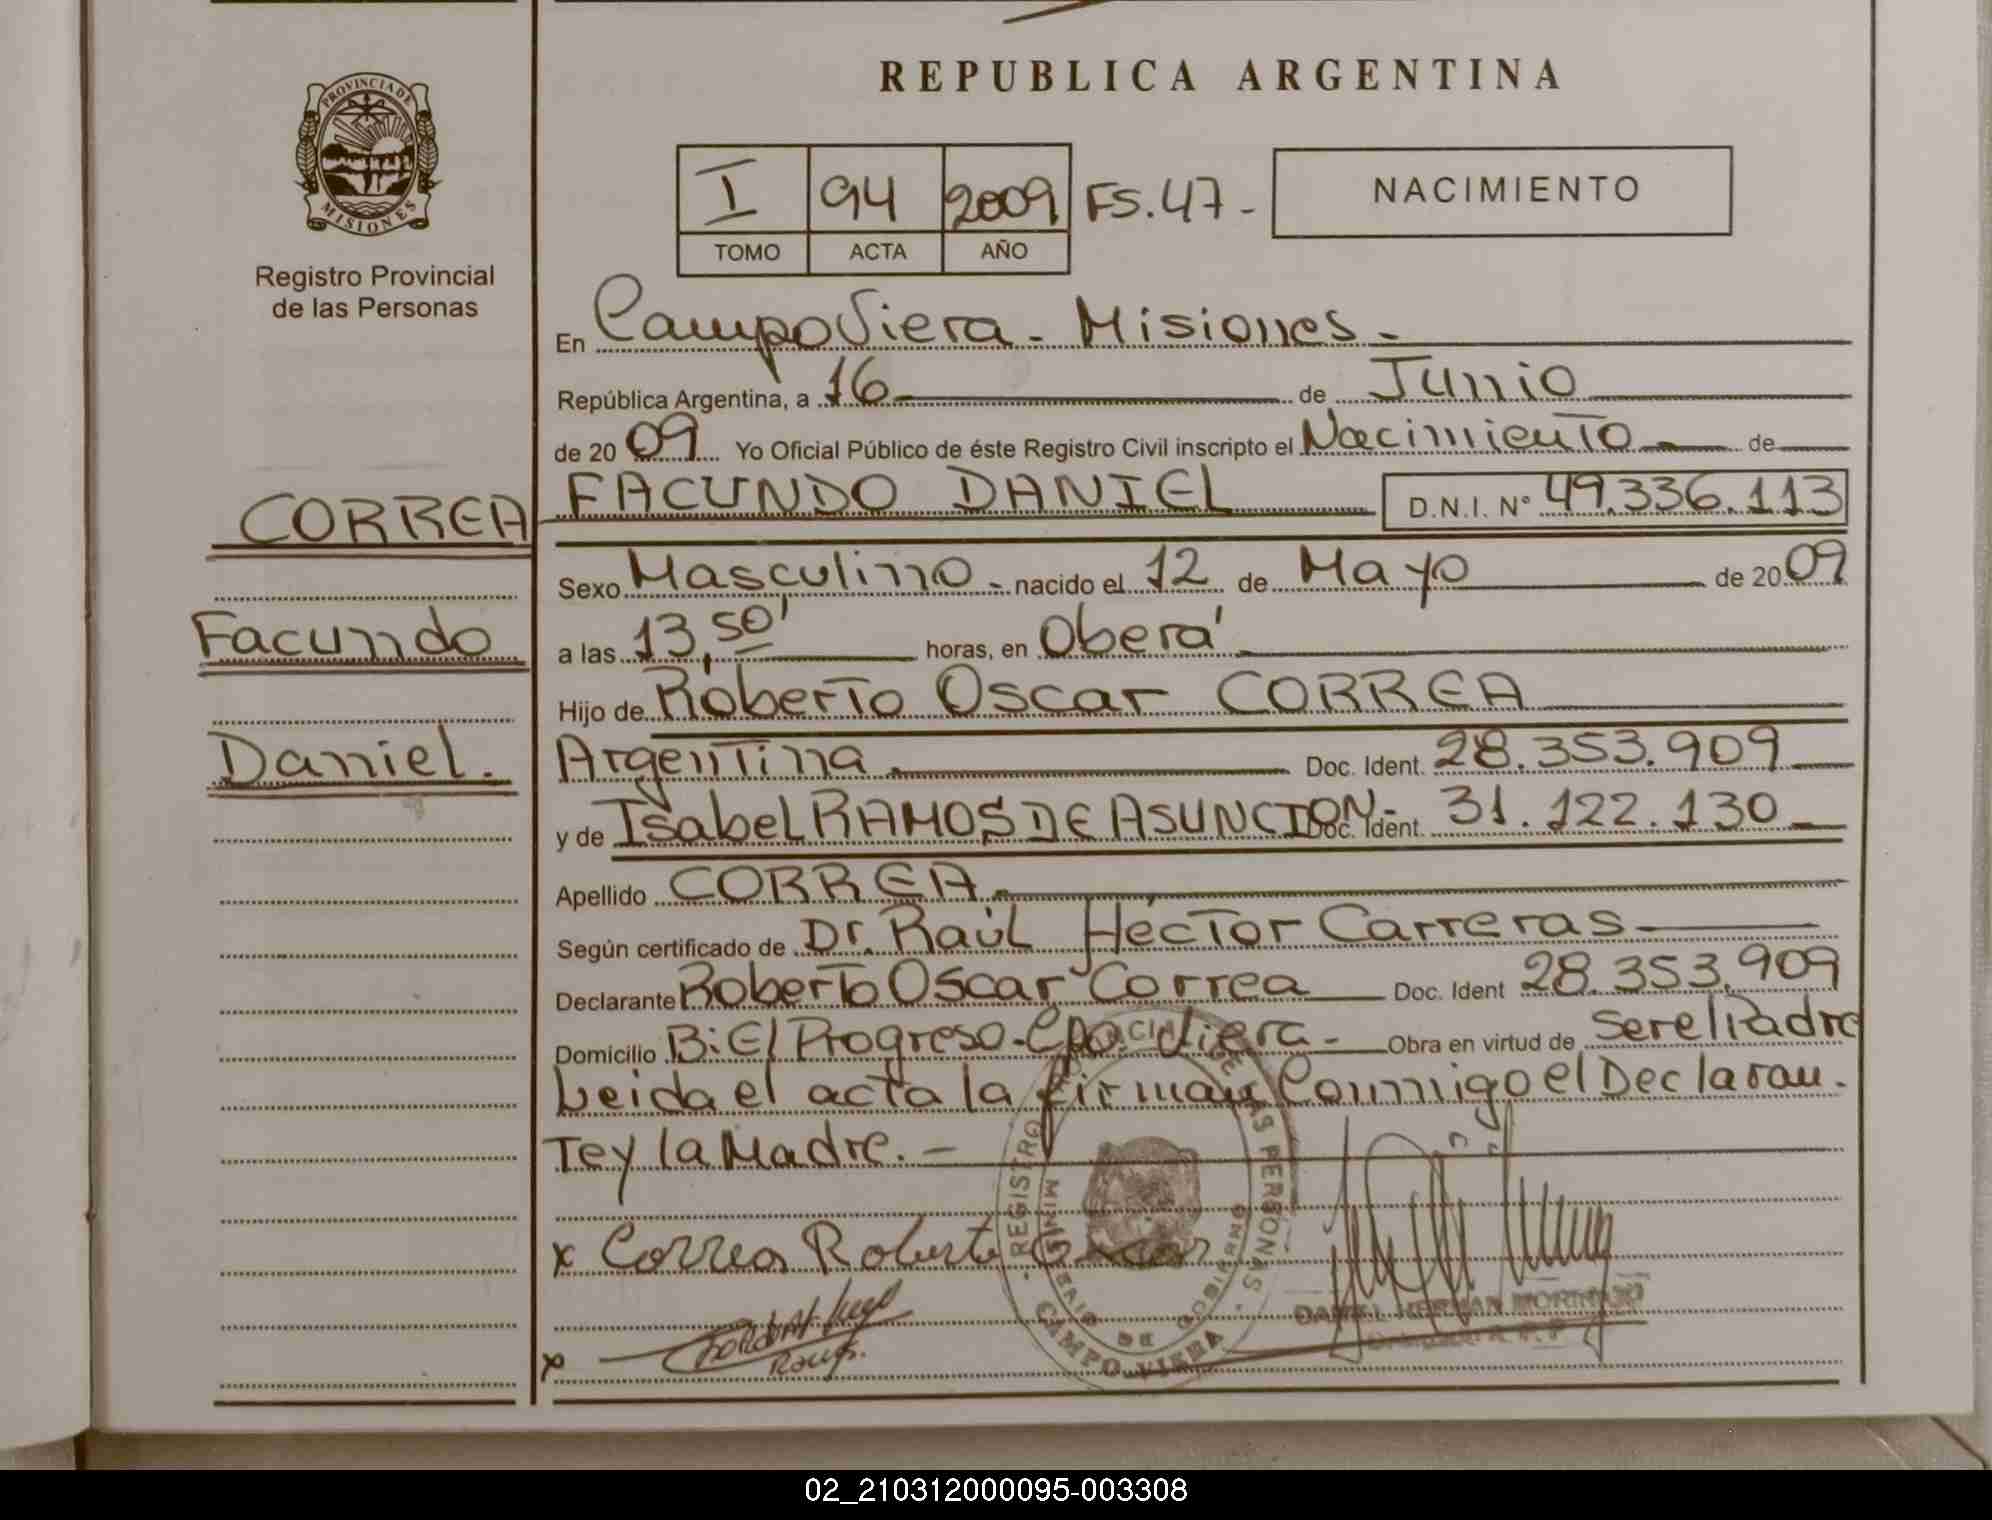 REPUBLICA ARGENTINA
PROVINCIA DE
MISIONES
Registro Provincial
de las Personas
I 94 2009 FS.47-
TOMO ACTA AÑO
NACIMIENTO
En Campo Viera - Misiones -
República Argentina, a 16 de Junio
de 20 09 Yo Oficial Público de éste Registro Civil inscripto el Nacimiento de
CORREA
Facundo
Daniel.
FACUNDO DANIEL D.N.I. N° 49.336.113
Sexo Masculino - nacido el 12 de Mayo de 20 09
a las 13,50' horas, en Oberá
Hijo de Roberto Oscar CORREA
Argentina Doc. Ident. 28.353.909
y de Isabel RAMOS DE ASUNCION - Doc. Ident. 31.122.130
Apellido CORREA
Según certificado de Dr. Raúl Héctor Carreras
Declarante Roberto Oscar Correa Doc. Ident 28.353.909
Domicilio B: El Progreso - Cpo. Viera - Obra en virtud de ser el Padre
Leida el acta la firman Conmigo el Declaran-
te y la Madre. -
x Correa Roberto Oscar
x
REGISTRO DE LAS PERSONAS
CAMPO VIERA
DE GOBIERNO
02_210312000095-003308